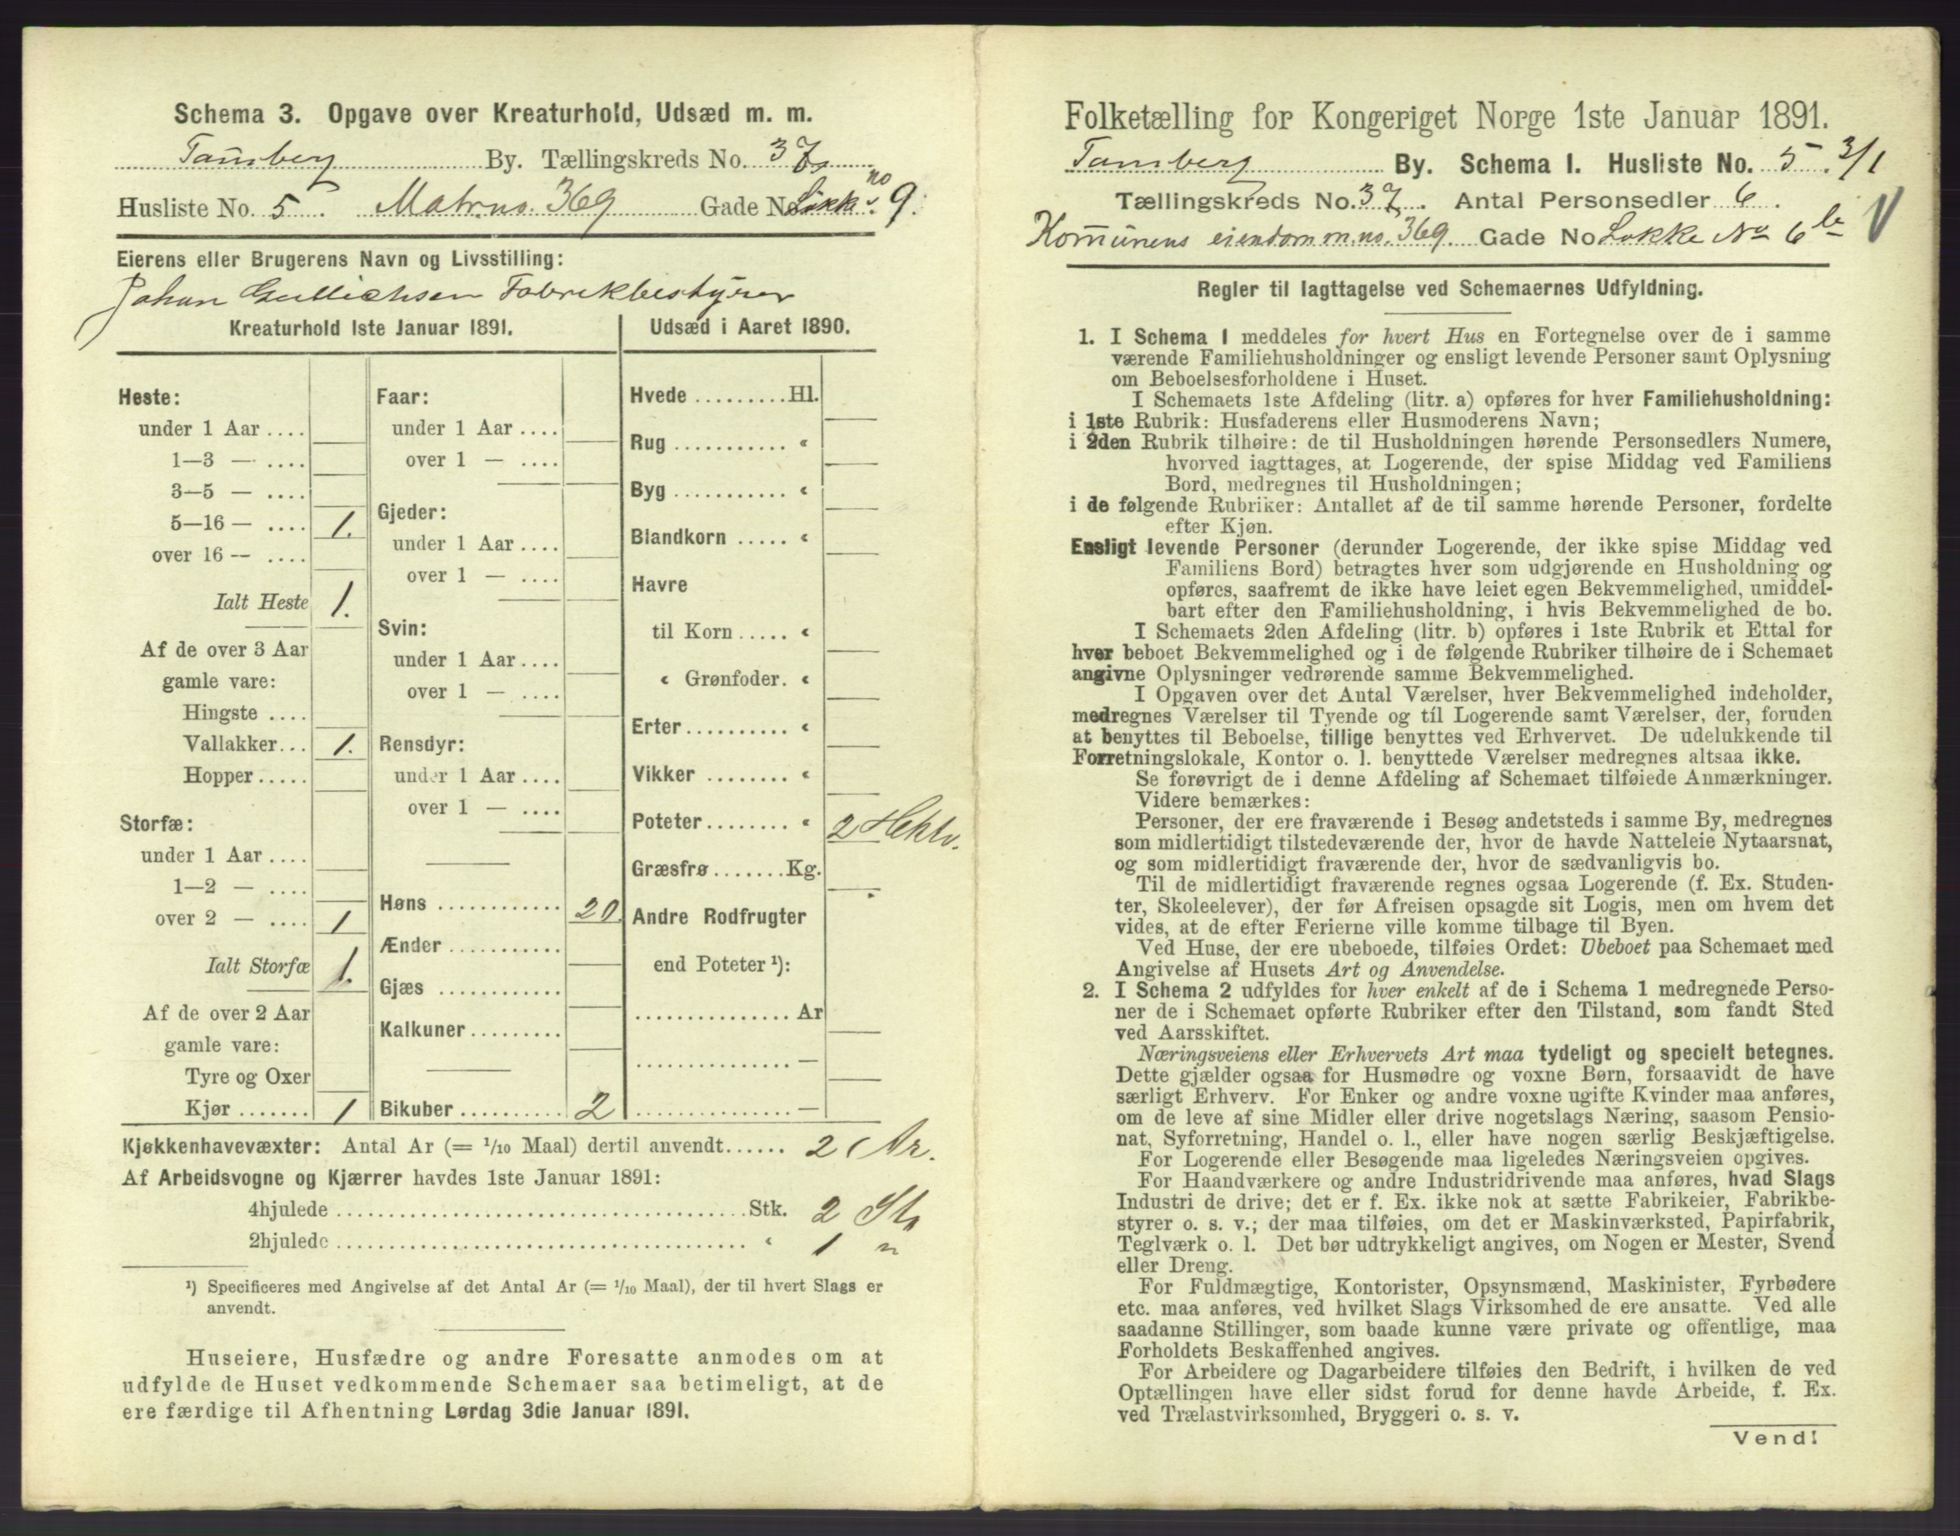 Schema 3. Opgave over Kreaturhold, Udsæd m. m.
Tønsberg By. Tællingskreds No. 37
Husliste No. 5. Matr. no. 369 Gade No. Løkk no 9.
Eierens eller Brugerens Navn og Livsstilling:
Johan Gullichsen Fabrikbestyrer
Kreaturhold 1ste Januar 1891.
Heste:
under 1 Aar ....
1—3 — ....
3—5 — ....
5—16 — .... 1.
over 16 — ....
Ialt Heste 1.
Af de over 3 Aar
gamle vare:
Hingste ....
Vallakker... 1.
Hopper.....
Storfæ:
under 1 Aar....
1—2 — ....
over 2 — .... 1
Ialt Storfæ 1.
Af de over 2 Aar
gamle vare:
Tyre og Oxer
Kjør ....... 1
Faar:
under 1 Aar....
over 1 — ....
Gjeder:
under 1 Aar....
over 1 — ....
Svin:
under 1 Aar....
over 1 — ....
Rensdyr:
under 1 Aar....
over 1 — ....
Høns ............ 20
Ænder ...........
Gjæs ............
Kalkuner.........
Bikuber.......... 2
Udsæd i Aaret 1890.
Hvede .........Hl.
Rug ........... «
Byg ........... «
Blandkorn ..... «
Havre
til Korn ..... «
« Grønfoder. «
Erter.......... «
Vikker ........ «
Poteter........ « 2 Hektv.
Græsfrø.......Kg.
Andre Rodfrugter
end Poteter ¹):
............... Ar
............... —
............... —
Kjøkkenhavevæxter: Antal Ar (= 1/10 Maal) dertil anvendt...... 2 Ar.
Af Arbeidsvogne og Kjærrer havdes 1ste Januar 1891:
4hjulede .....................................Stk. 2 Stk
2hjulede ..................................... « 1 "
¹) Specificeres med Angivelse af det Antal Ar (= 1/10 Maal), der til hvert Slags er
anvendt.
Huseiere, Husfædre og andre Foresatte anmodes om at
udfylde de Huset vedkommende Schemaer saa betimeligt, at de
ere færdige til Afhentning Lørdag 3die Januar 1891.
Folketælling for Kongeriget Norge 1ste Januar 1891.
Tønsberg By. Schema I. Husliste No. 5. 3/1
Tællingskreds No. 37. Antal Personsedler 6. V
Komunens eiendom m. no. 369. Gade No Løkke No 6 b
Regler til Iagttagelse ved Schemaernes Udfyldning.
1. I Schema 1 meddeles for hvert Hus en Fortegnelse over de i samme
værende Familiehusholdninger og ensligt levende Personer samt Oplysning
om Beboelsesforholdene i Huset.
I Schemaets 1ste Afdeling (litr. a) opføres for hver Familiehusholdning:
i 1ste Rubrik: Husfaderens eller Husmoderens Navn;
i 2den Rubrik tilhøire: de til Husholdningen hørende Personsedlers Numere,
hvorved iagttages, at Logerende, der spise Middag ved Familiens
Bord, medregnes til Husholdningen;
i de følgende Rubriker: Antallet af de til samme hørende Personer, fordelte
efter Kjøn.
Ensligt levende Personer (derunder Logerende, der ikke spise Middag ved
Familiens Bord) betragtes hver som udgjørende en Husholdning og
opføres, saafremt de ikke have leiet egen Bekvemmelighed, umiddel-
bart efter den Familiehusholdning, i hvis Bekvemmelighed de bo.
I Schemaets 2den Afdeling (litr. b) opføres i 1ste Rubrik et Ettal for
hver beboet Bekvemmelighed og i de følgende Rubriker tilhøire de i Schemaet
angivne Oplysninger vedrørende samme Bekvemmelighed.
I Opgaven over det Antal Værelser, hver Bekvemmelighed indeholder,
medregnes Værelser til Tyende og til Logerende samt Værelser, der, foruden
at benyttes til Beboelse, tillige benyttes ved Erhvervet. De udelukkende til
Forretningslokale, Kontor o. l. benyttede Værelser medregnes altsaa ikke.
Se forøvrigt de i denne Afdeling af Schemaet tilføiede Anmærkninger.
Videre bemærkes:
Personer, der ere fraværende i Besøg andetsteds i samme By, medregnes
som midlertidigt tilstedeværende der, hvor de havde Natteleie Nytaarsnat,
og som midlertidigt fraværende der, hvor de sædvanligvis bo.
Til de midlertidigt fraværende regnes ogsaa Logerende (f. Ex. Studen-
ter, Skoleelever), der før Afreisen opsagde sit Logis, men om hvem det
vides, at de efter Ferierne ville komme tilbage til Byen.
Ved Huse, der ere ubeboede, tilføies Ordet: Ubeboet paa Schemaet med
Angivelse af Husets Art og Anvendelse.
2. I Schema 2 udfyldes for hver enkelt af de i Schema 1 medregnede Perso-
ner de i Schemaet opførte Rubriker efter den Tilstand, som fandt Sted
ved Aarsskiftet.
Næringsveiens eller Erhvervets Art maa tydeligt og specielt betegnes.
Dette gjælder ogsaa for Husmødre og voxne Børn, forsaavidt de have
særligt Erhverv. For Enker og andre voxne ugifte Kvinder maa anføres,
om de leve af sine Midler eller drive nogetslags Næring, saasom Pensio-
nat, Syforretning, Handel o. l., eller have nogen særlig Beskjæftigelse.
For Logerende eller Besøgende maa ligeledes Næringsveien opgives.
For Haandværkere og andre Industridrivende maa anføres, hvad Slags
Industri de drive; det er f. Ex. ikke nok at sætte Fabrikeier, Fabrikbe-
styrer o. s. v.; der maa tilføies, om det er Maskinværksted, Papirfabrik,
Teglværk o. l. Det bør udtrykkeligt angives, om Nogen er Mester, Svend
eller Dreng.
For Fuldmægtige, Kontorister, Opsynsmænd, Maskinister, Fyrbødere
etc. maa anføres, ved hvilket Slags Virksomhed de ere ansatte. Ved alle
saadanne Stillinger, som baade kunne være private og offentlige, maa
Forholdets Beskaffenhed angives.
For Arbeidere og Dagarbeidere tilføies den Bedrift, i hvilken de ved
Optællingen have eller sidst forud for denne havde Arbeide, f. Ex.
ved Trælastvirksomhed, Bryggeri o. s. v.
Vend!